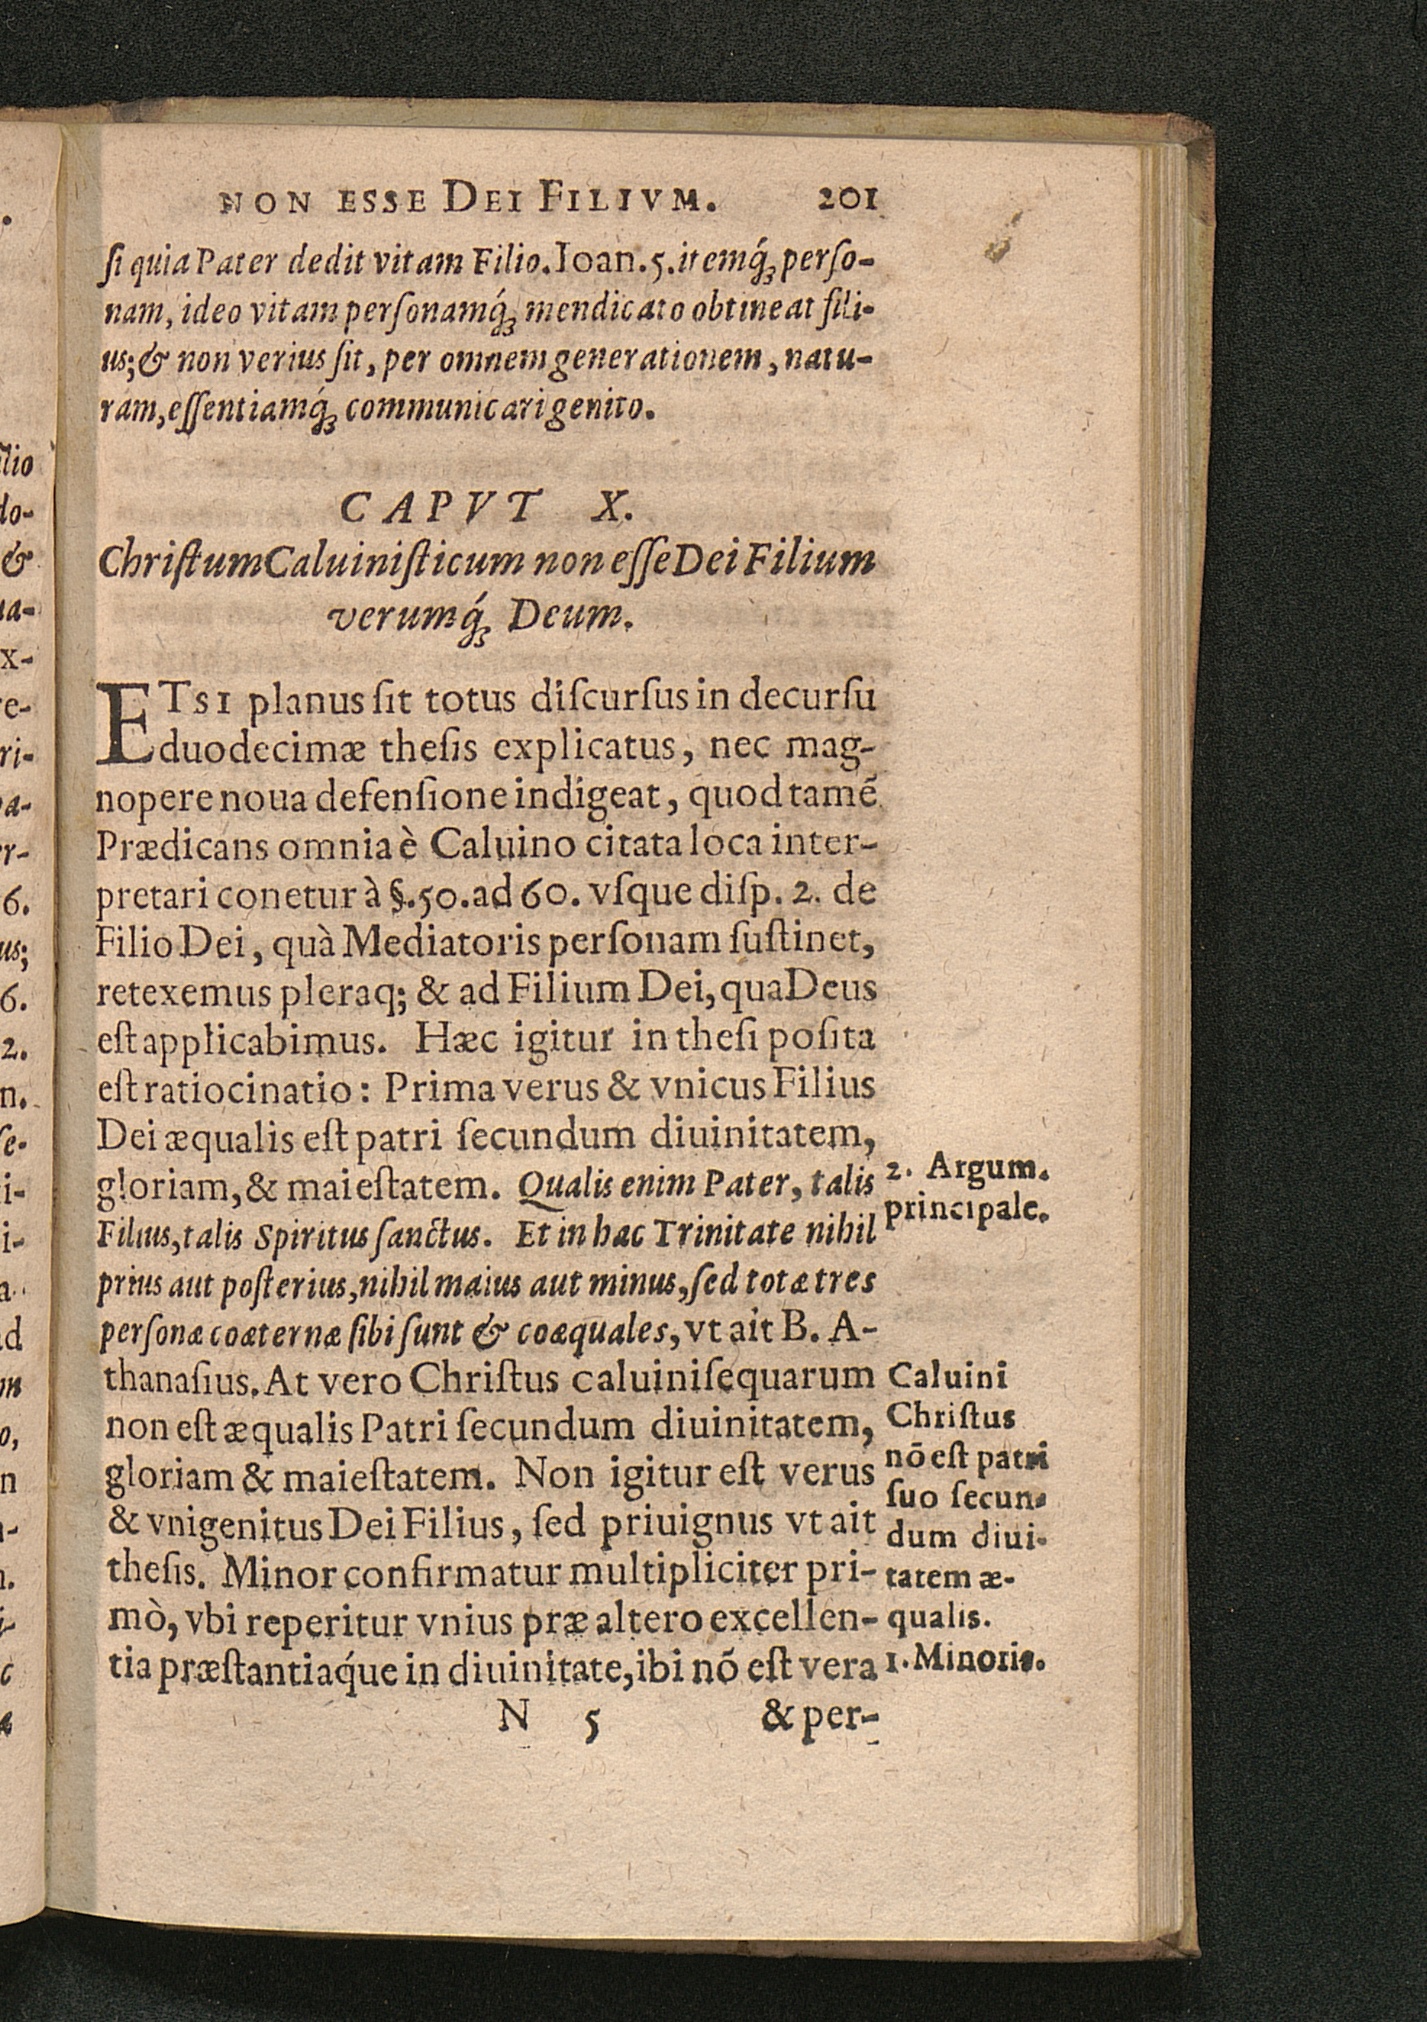 NON ESSE DEI FILIVM. 201
ſi quia Pater dedit vitam Filio. Ioan. 5. itemq́; perſo-
nam, ideo vitam perſonamq́; mendicato obtineat fili-
us; & non verius ſit, per omnem generationem, natu-
ram, eſſentiamq́; communicari genito.
CAPVT X.
Chriſtum Caluiniſticum non eſſe Dei Filium
verumq́; Deum.
ETSI planus ſit totus diſcurſus in decurſu
duodecimæ theſis explicatus, nec mag-
nopere noua defenſione indigeat, quod tamẽ
Prædicans omnia è Caluino citata loca inter-
pretari conetur à §. 50. ad 60. vſque diſp. 2. de
Filio Dei, quà Mediatoris perſonam ſuſtinet,
retexemus pleraq; & ad Filium Dei, qua Deus
eſt applicabimus. Hæc igitur in theſi poſita
eſt ratiocinatio: Prima verus & vnicus Filius
Dei æqualis eſt patri ſecundum diuinitatem,
gloriam, & maieſtatem. Qualis enim Pater, talis
Filius, talis Spiritus ſanctus. Et in hac Trinitate nihil
prius aut poſterius, nihil maius aut minus, ſed totæ tres
perſonæ coæternæ ſibi ſunt & coæquales, vt ait B. A-
thanaſius. At vero Chriſtus caluiniſequarum
non eſt æqualis Patri ſecundum diuinitatem,
gloriam & maieſtatem. Non igitur eſt verus
& vnigenitus Dei Filius, ſed priuignus vt ait
theſis. Minor confirmatur multipliciter pri-
mò, vbi reperitur vnius præ altero excellen-
tia præſtantiaq́ue in diuinitate, ibi nõ eſt vera
N 5 & per-
2. Argum.
principale.
Caluini
Chriſtus
nõ eſt patri
ſuo ſecun-
dum diui-
tatem æ-
qualis.
1. Minoris.